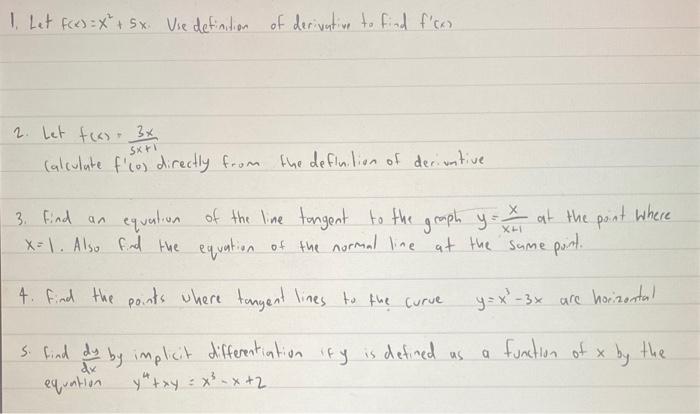 1. Let f(x)=x² + 5x. Use definition of derivative to find f'(x)
2. Let f(x) = 3x/5x+1
Calculate f'(0) directly from the definition of derivative
3. Find an equation of the line tangent to the graph y = x/x+1 at the point where
x=1. Also find the equation of the normal line at the same point.
4. Find the points where tangent lines to the curve y=x³-3x are horizontal
5. find dy/dx by implicit differentiation if y is defined as a function of x by the
equation y⁴+xy = x³-x+2